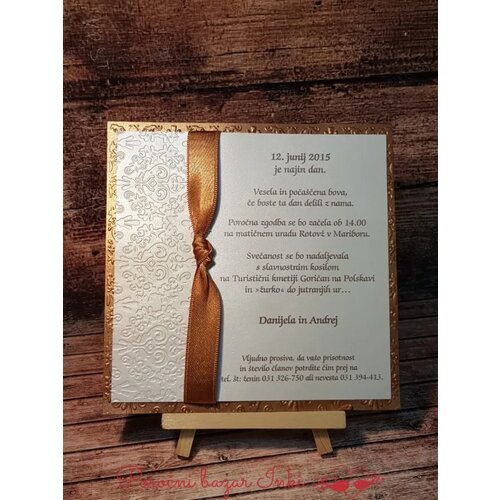 12. junij 2015
je najin dan.
Vesela in počaščena bova,
če boste ta dan delili z nama.
Poročna zgodba se bo začela ob 14.00
na matičnem uradu Rotovž v Mariboru.
Svečanost se bo nadaljevala
s slavnostnim kosilom
na Turistični kmetiji Goričan na Polskavi
in »žurko« do jutranjih ur…
Danijela in Andrej
Vljudno prosiva, da vašo prisotnost
in število članov potrdite čim prej na
tel. št: ženin 031 326-750 ali nevesta 031 394-413.
Poročni bazar Inki